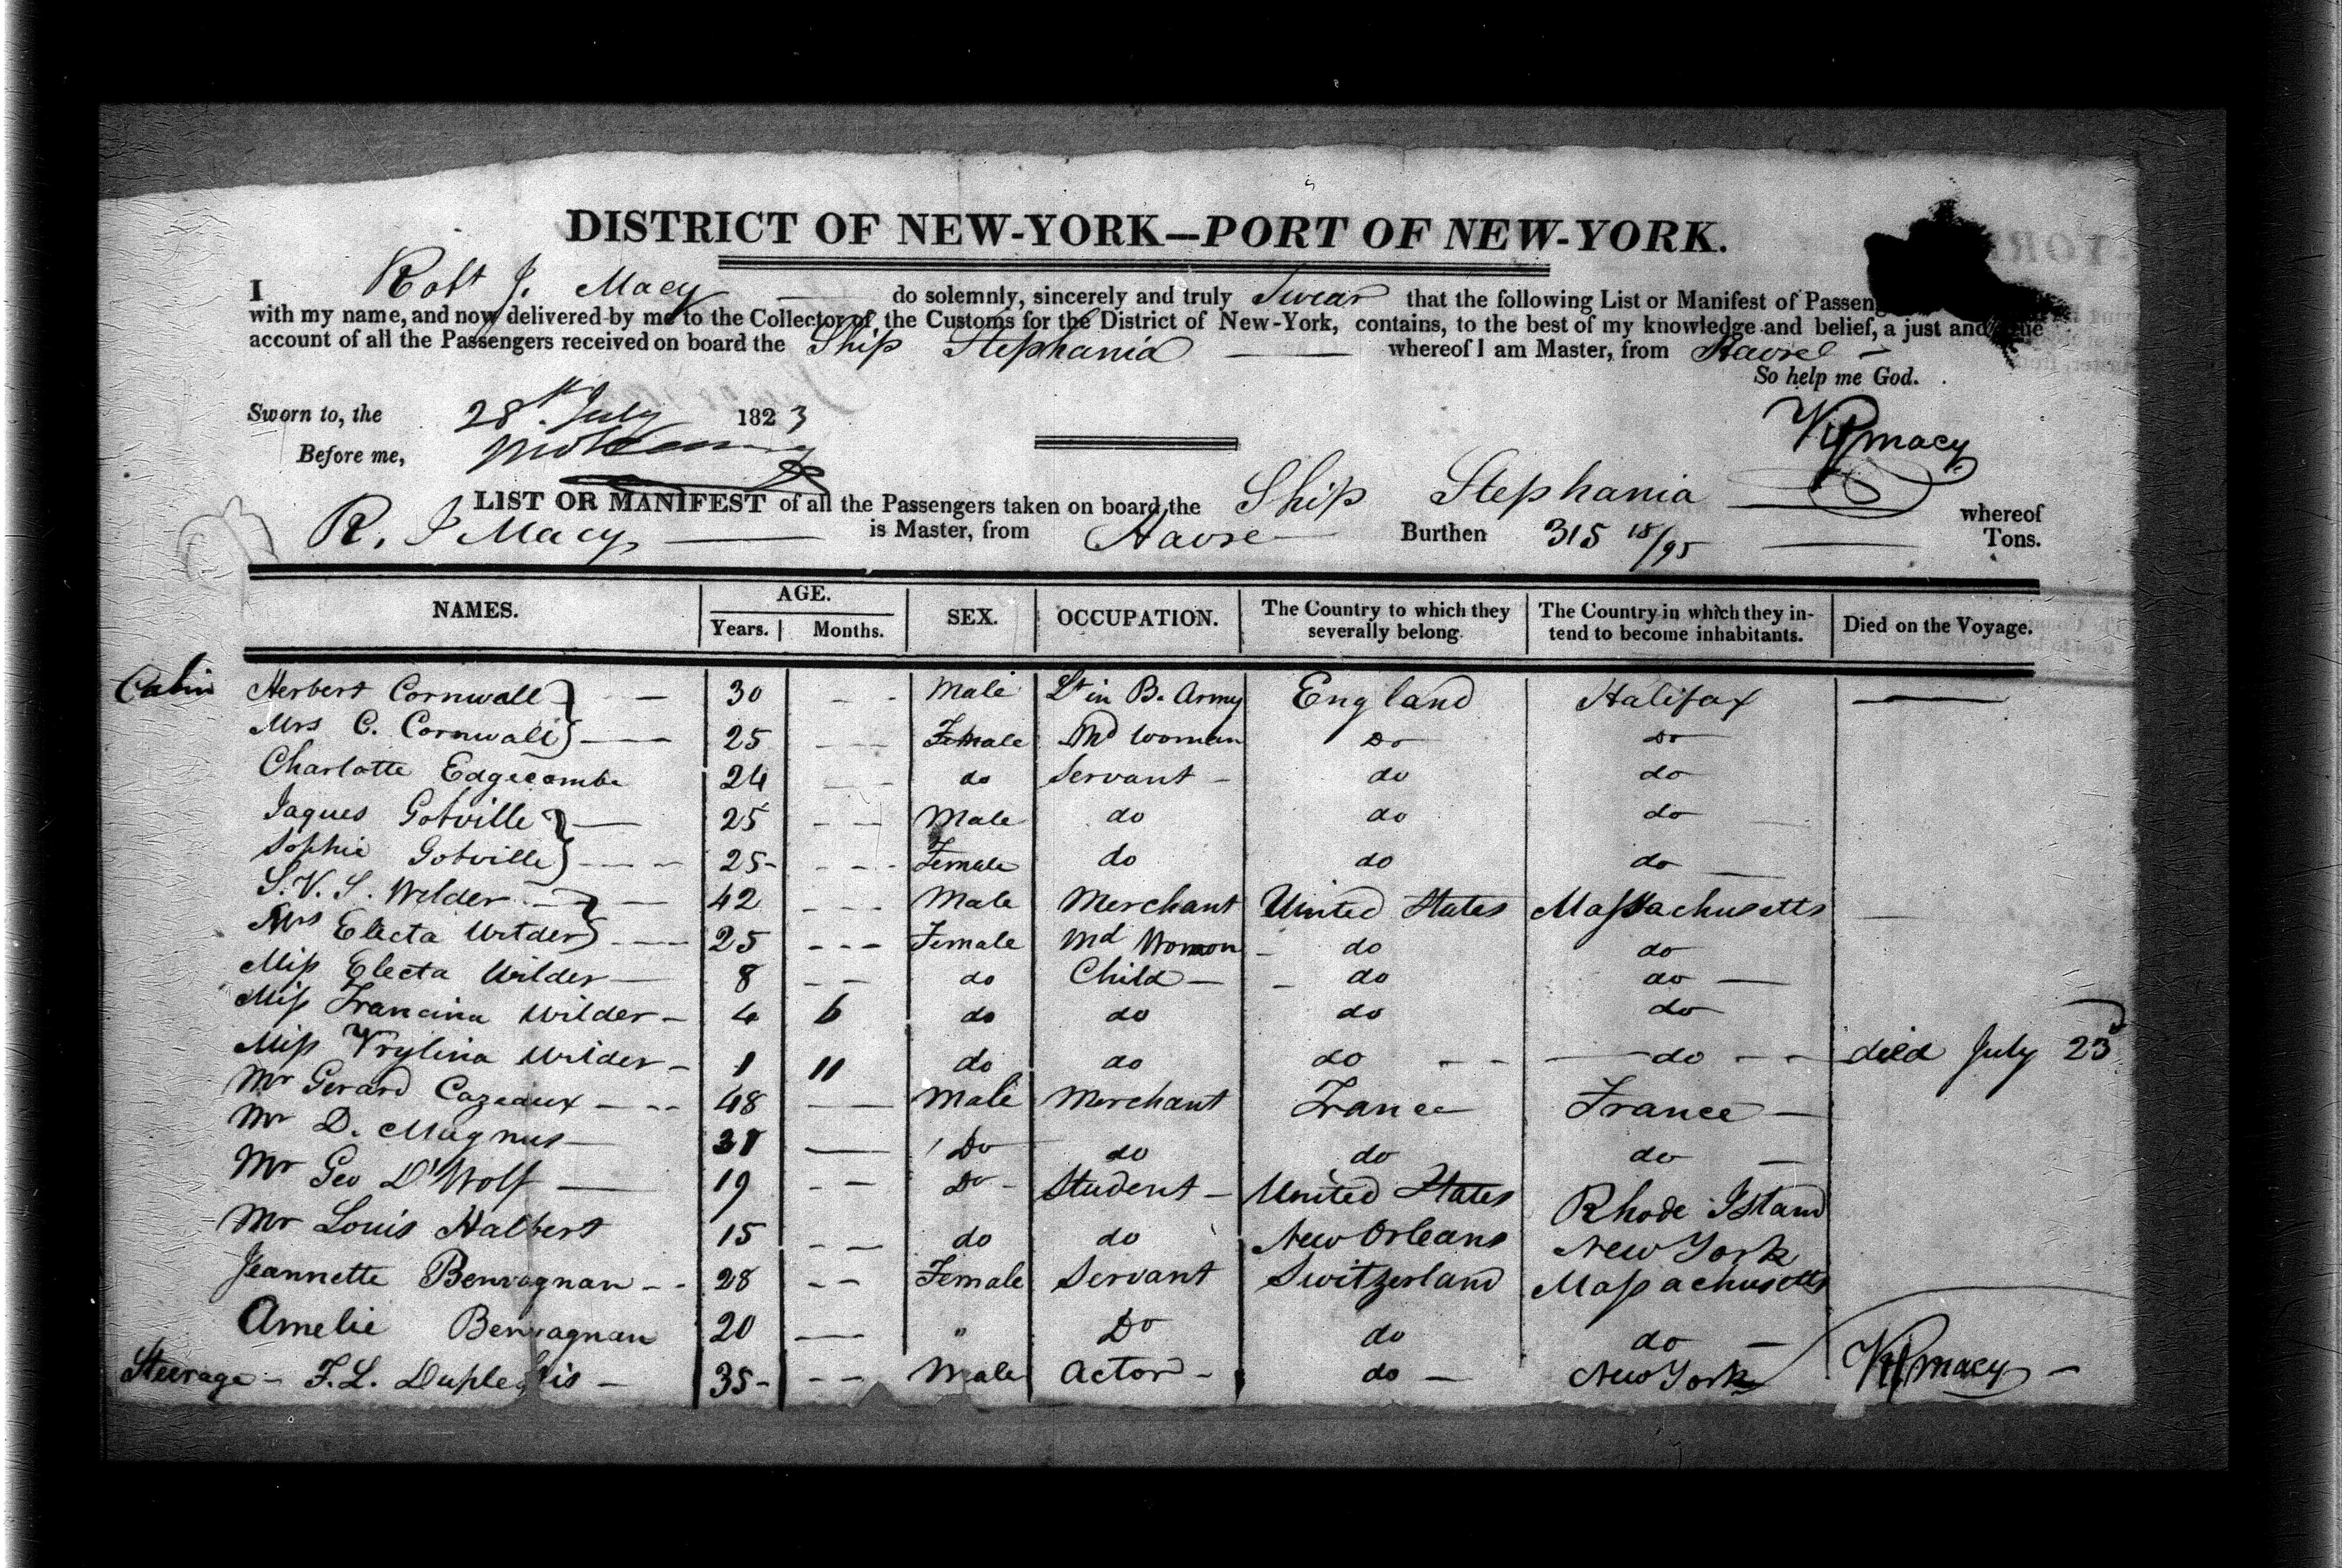 DISTRICT OF NEW-YORK—PORT OF NEW-YORK.
I Robt J. Macy do solemnly, sincerely and truly Swear that the following List or Manifest of Passen
with my name, and now delivered by me to the Collector of the Customs for the District of New-York, contains, to the best of my knowledge and belief, a just and true
account of all the Passengers received on board the Ship Stephania whereof I am Master, from Havre
So help me God.
Sworn to, the 28th July 1823
Before me,
RJMacy
LIST OR MANIFEST of all the Passengers taken on board the Ship Stephania whereof
R. J Macy is Master, from Havre Burthen 315 18/95 Tons.
NAMES. AGE. Years. Months. SEX. OCCUPATION. The Country to which they severally belong. The Country in which they intend to become inhabitants. Died on the Voyage.
Cabin Herbert Cornwall 30 Male Lt in B. Army England Halifax
Mrs C. Cornwall 25 Female Md Woman Do Do
Charlotte Edgecombe 24 do Servant do do
Jaques Gotville 25 Male do do do
Sophie Gotville 25 Female do do do
S. V. S. Wilder 42 Male Merchant United States Massachusetts
Mrs Electa Wilder 25 Female Md Woman do do
Miss Electa Wilder 8 do Child do do
Miss Francina Wilder 4 6 do do do do
Miss Vrylina Wilder 1 11 do do do do died July 23d
Mr Gerard Cazeaux 48 Male Merchant France France
Mr D. Magnus 31 Do do do do
Mr Geo D'Wolf 19 Do Student United States Rhode Island
Mr Louis Halbert 15 do do New Orleans New York
Jeannette Benvagnan 28 Female Servant Switzerland Massachusetts
Amelie Benvagnan 20 " Do do do
Steerage F. L. Duplessis 35 Male Actor do New York RJMacy